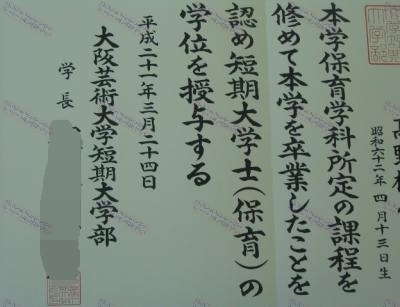 昭和六十二年 四月十三日生
本学保育学科所定の課程を
修めて本学を卒業したことを
認め短期大学士(保育)の
学位を授与する
平成二十一年三月二十四日
大阪芸術大学短期大学部
学長